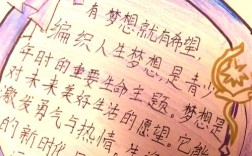 有梦想就有希望,
编织人生梦想,是青少
年时的重要生命主题。梦想是
对未来美好生活的愿望。它能
激发勇气与热情
的新时代